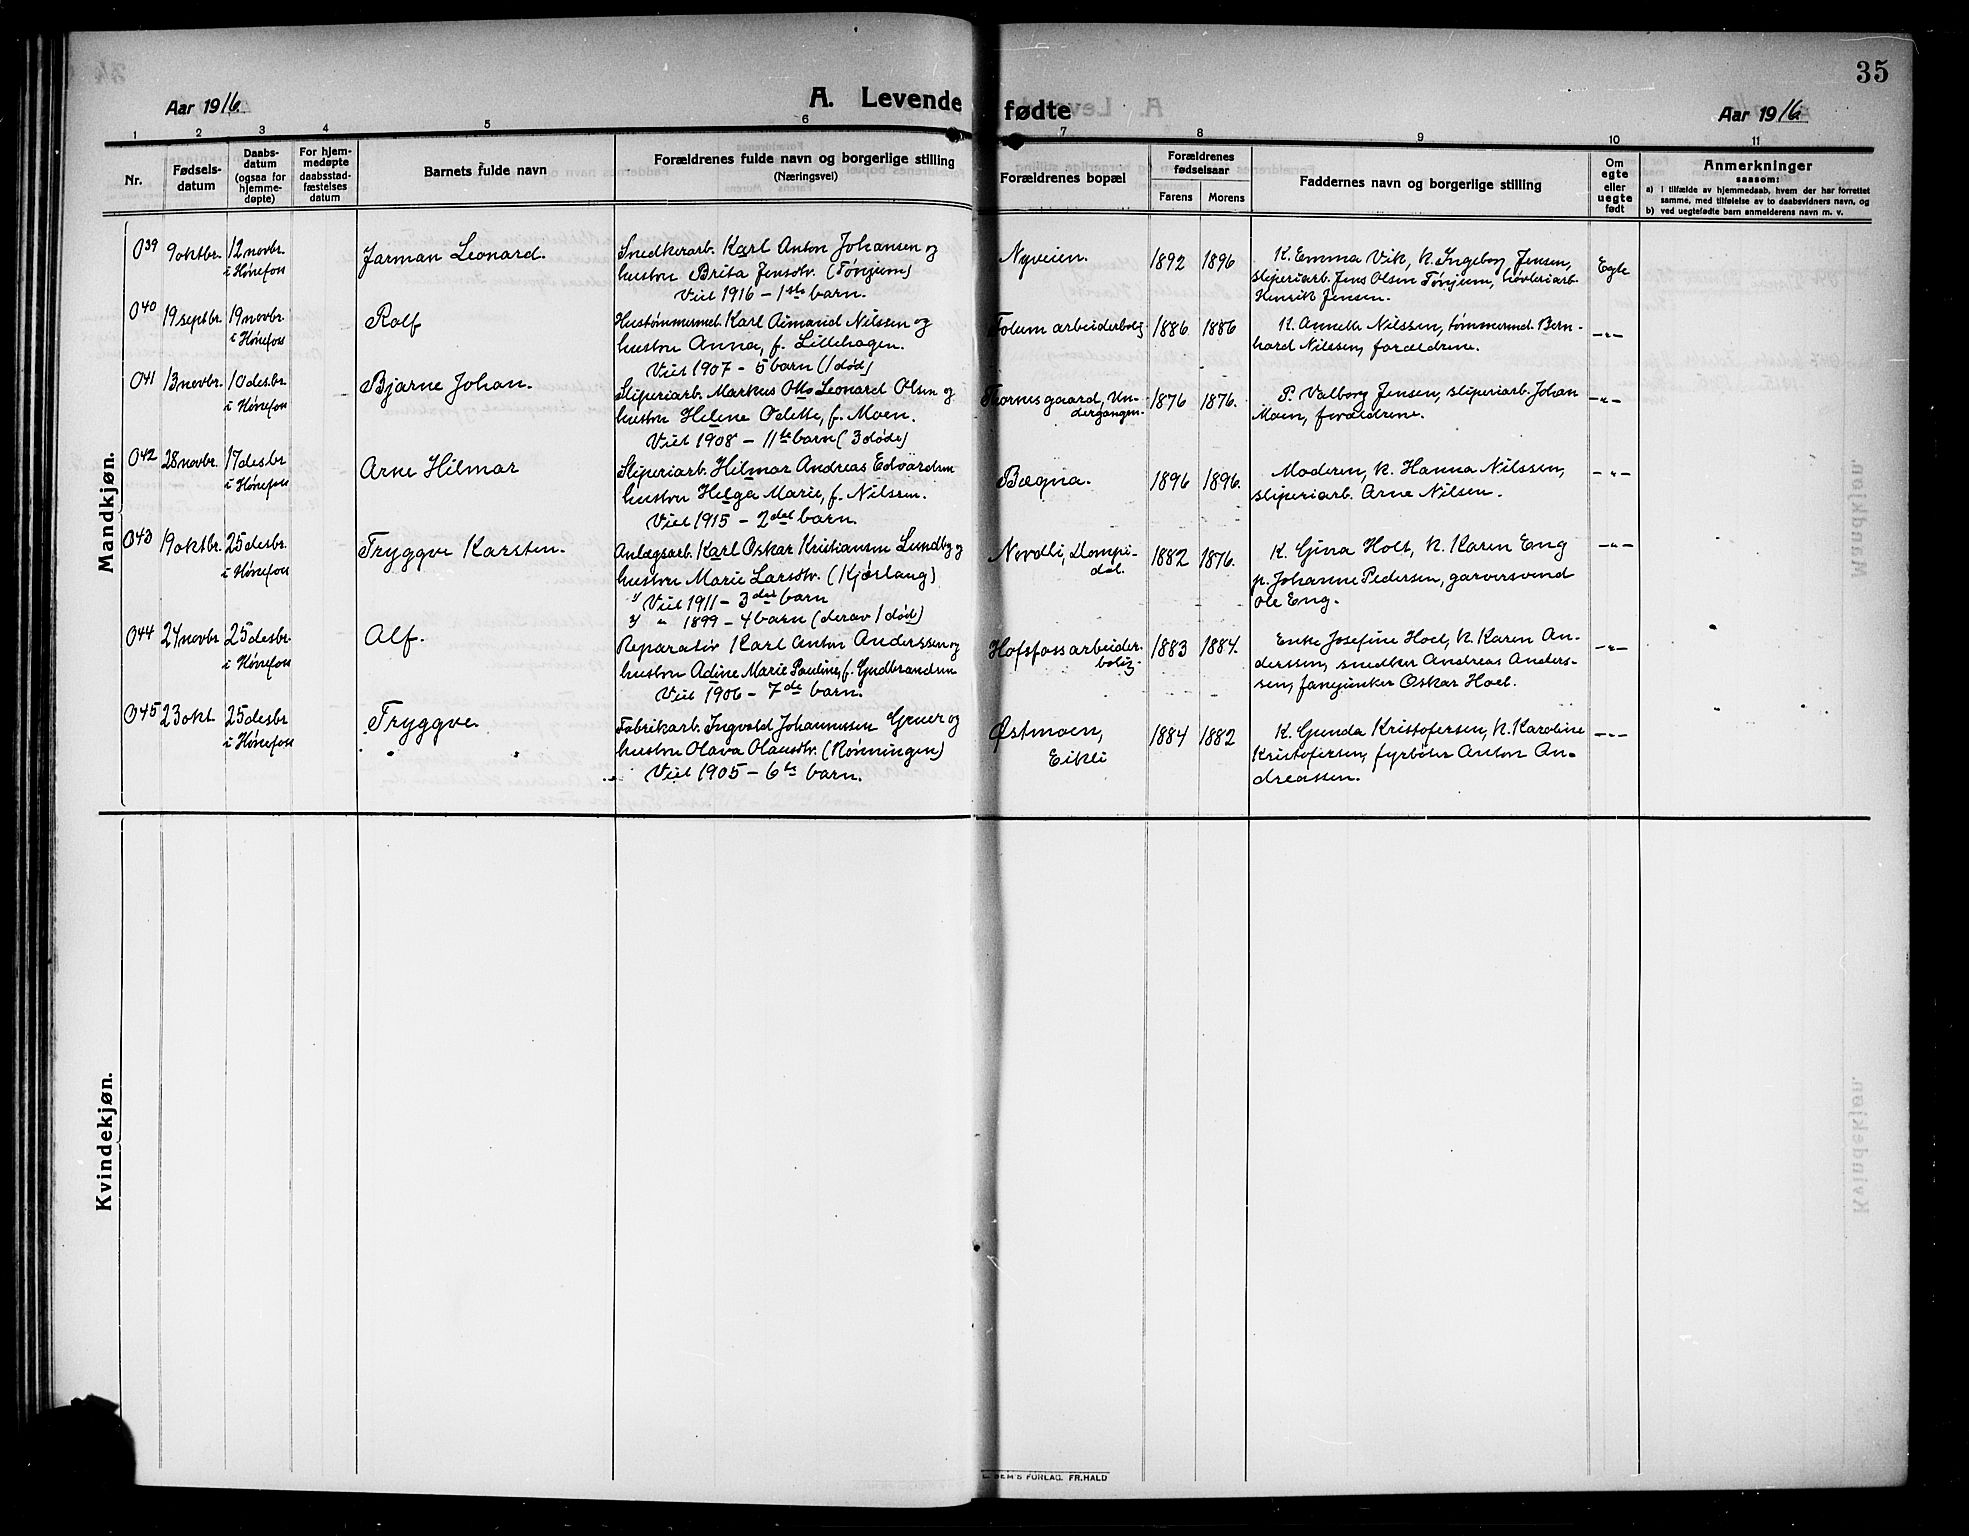 35
Aar 1916.
A. Levende fødte
Aar 1916
1 2 3 4 5 6 7 8 9 10 11
Nr.
Fødsels-
datum
Daabs-
datum
(ogsaa for
hjemme-
døpte)
For hjem-
medøpte
daabsstad-
fæstelses
datum
Barnets fulde navn
Forældrenes fulde navn og borgerlige stilling
(Næringsvei)
Forældrenes bopæl
Forældrenes
fødselsaar
Farens
Morens
Faddernes navn og borgerlige stilling
Om
egte
eller
uegte
født
Anmerkninger
saasom:
a) i tilfælde av hjemmedaab, hvem der har forrettet
samme, med tilføielse av to daabsvidners navn, og
b) ved uegtefødte barn anmelderens navn m. v.
Mandkjøn.
039 9 oktbr. 12 novbr. Jarman Leonard. Snedkerarb. Karl Anton Johansen og Nyveien. 1892 1896 K. Emma Vik, k. Ingeborg Jensen, Egte
i Hønefoss hustru Brita Jensdtr. (Tønjum) sliperiarb. Jens Olsen Tønjum, høvleriarb.
Viet 1916 - 1ste barn. Henrik Jensen.
040 19 septbr. 19 novbr. Rolf Hustømmermd. Karl Aimand Nilssen og Folum arbeiderbolig 1886 1886 K. Annette Nilssen, tømmermd. Bern- -"-
i Hønefoss hustru Anna, f. Lillehagen. hard Nilssen, forældrene.
Viet 1907 - 5 barn (1 død)
041 13 novbr. 10 desbr. Bjarne Johan. Sliperiarb. Markus Otto Leonard Olsen og Tjornesgaard, Un- 1876 1876. P. Valborg Jensen, sliperiarb. Johan -"-
i Hønefoss hustru Helene Odette, f. Moen. dergangen. Moen, forældrene.
Viet 1908 - 11te barn (3 døde)
042 28 novbr. 17 desbr Arne Hilmar Sliperiarb. Hilmar Andreas Edvardsen Bægna. 1896 1896. Moderen, k. Hanna Nilssen, -"-
i Hønefoss hustru Helga Marie, f. Nilssen. sliperiarb. Arne Nilsen.
Viet 1915 - 2det barn.
043 19 oktbr. 25 desbr. Tryggve Karsten. Anlægsarb. Karl Oskar Kristiansen Lundby og Nordli, Dompi- 1882 1876. K. Gjina Holt, k. Karen Eng -"-
i Hønefoss hustru Marie Larsdtr. (Kjøslang) dal. p. Johanne Pedersen, garversvend
1/ Viet 1911 - 3det barn Ole Eng.
2/ " 1899 - 4 barn (derav 1 død)
044 24 novbr 25 desbr. Alf. Reparatør Karl Anton Anderssen og Hofsfoss arbeider- 1883 1884. Enke Josefine Hoel, k. Karen An- -"-
i Hønefoss hustru Adine Marie Pauline, f. Gudbrandsen bolig. derssen, snedker Andreas Anders-
Viet 1906 - 7de barn. sen, fanejunker Oskar Hoel.
045 23 okt. 25 desbr Tryggve. Fabrikarb. Ingvald Johannessen Gruer og Østmoen, 1884 1882 K. Gunda Kristofersen, k. Karoline -"-
i Hønefoss hustru Olava Olausdtr. (Rønningen) Eikli Kristofersen, fyrbøter Anton An-
Viet 1905 - 6te barn. dreassen.
Kvindekjøn.
SEM'S FORLAG. FR. HALD